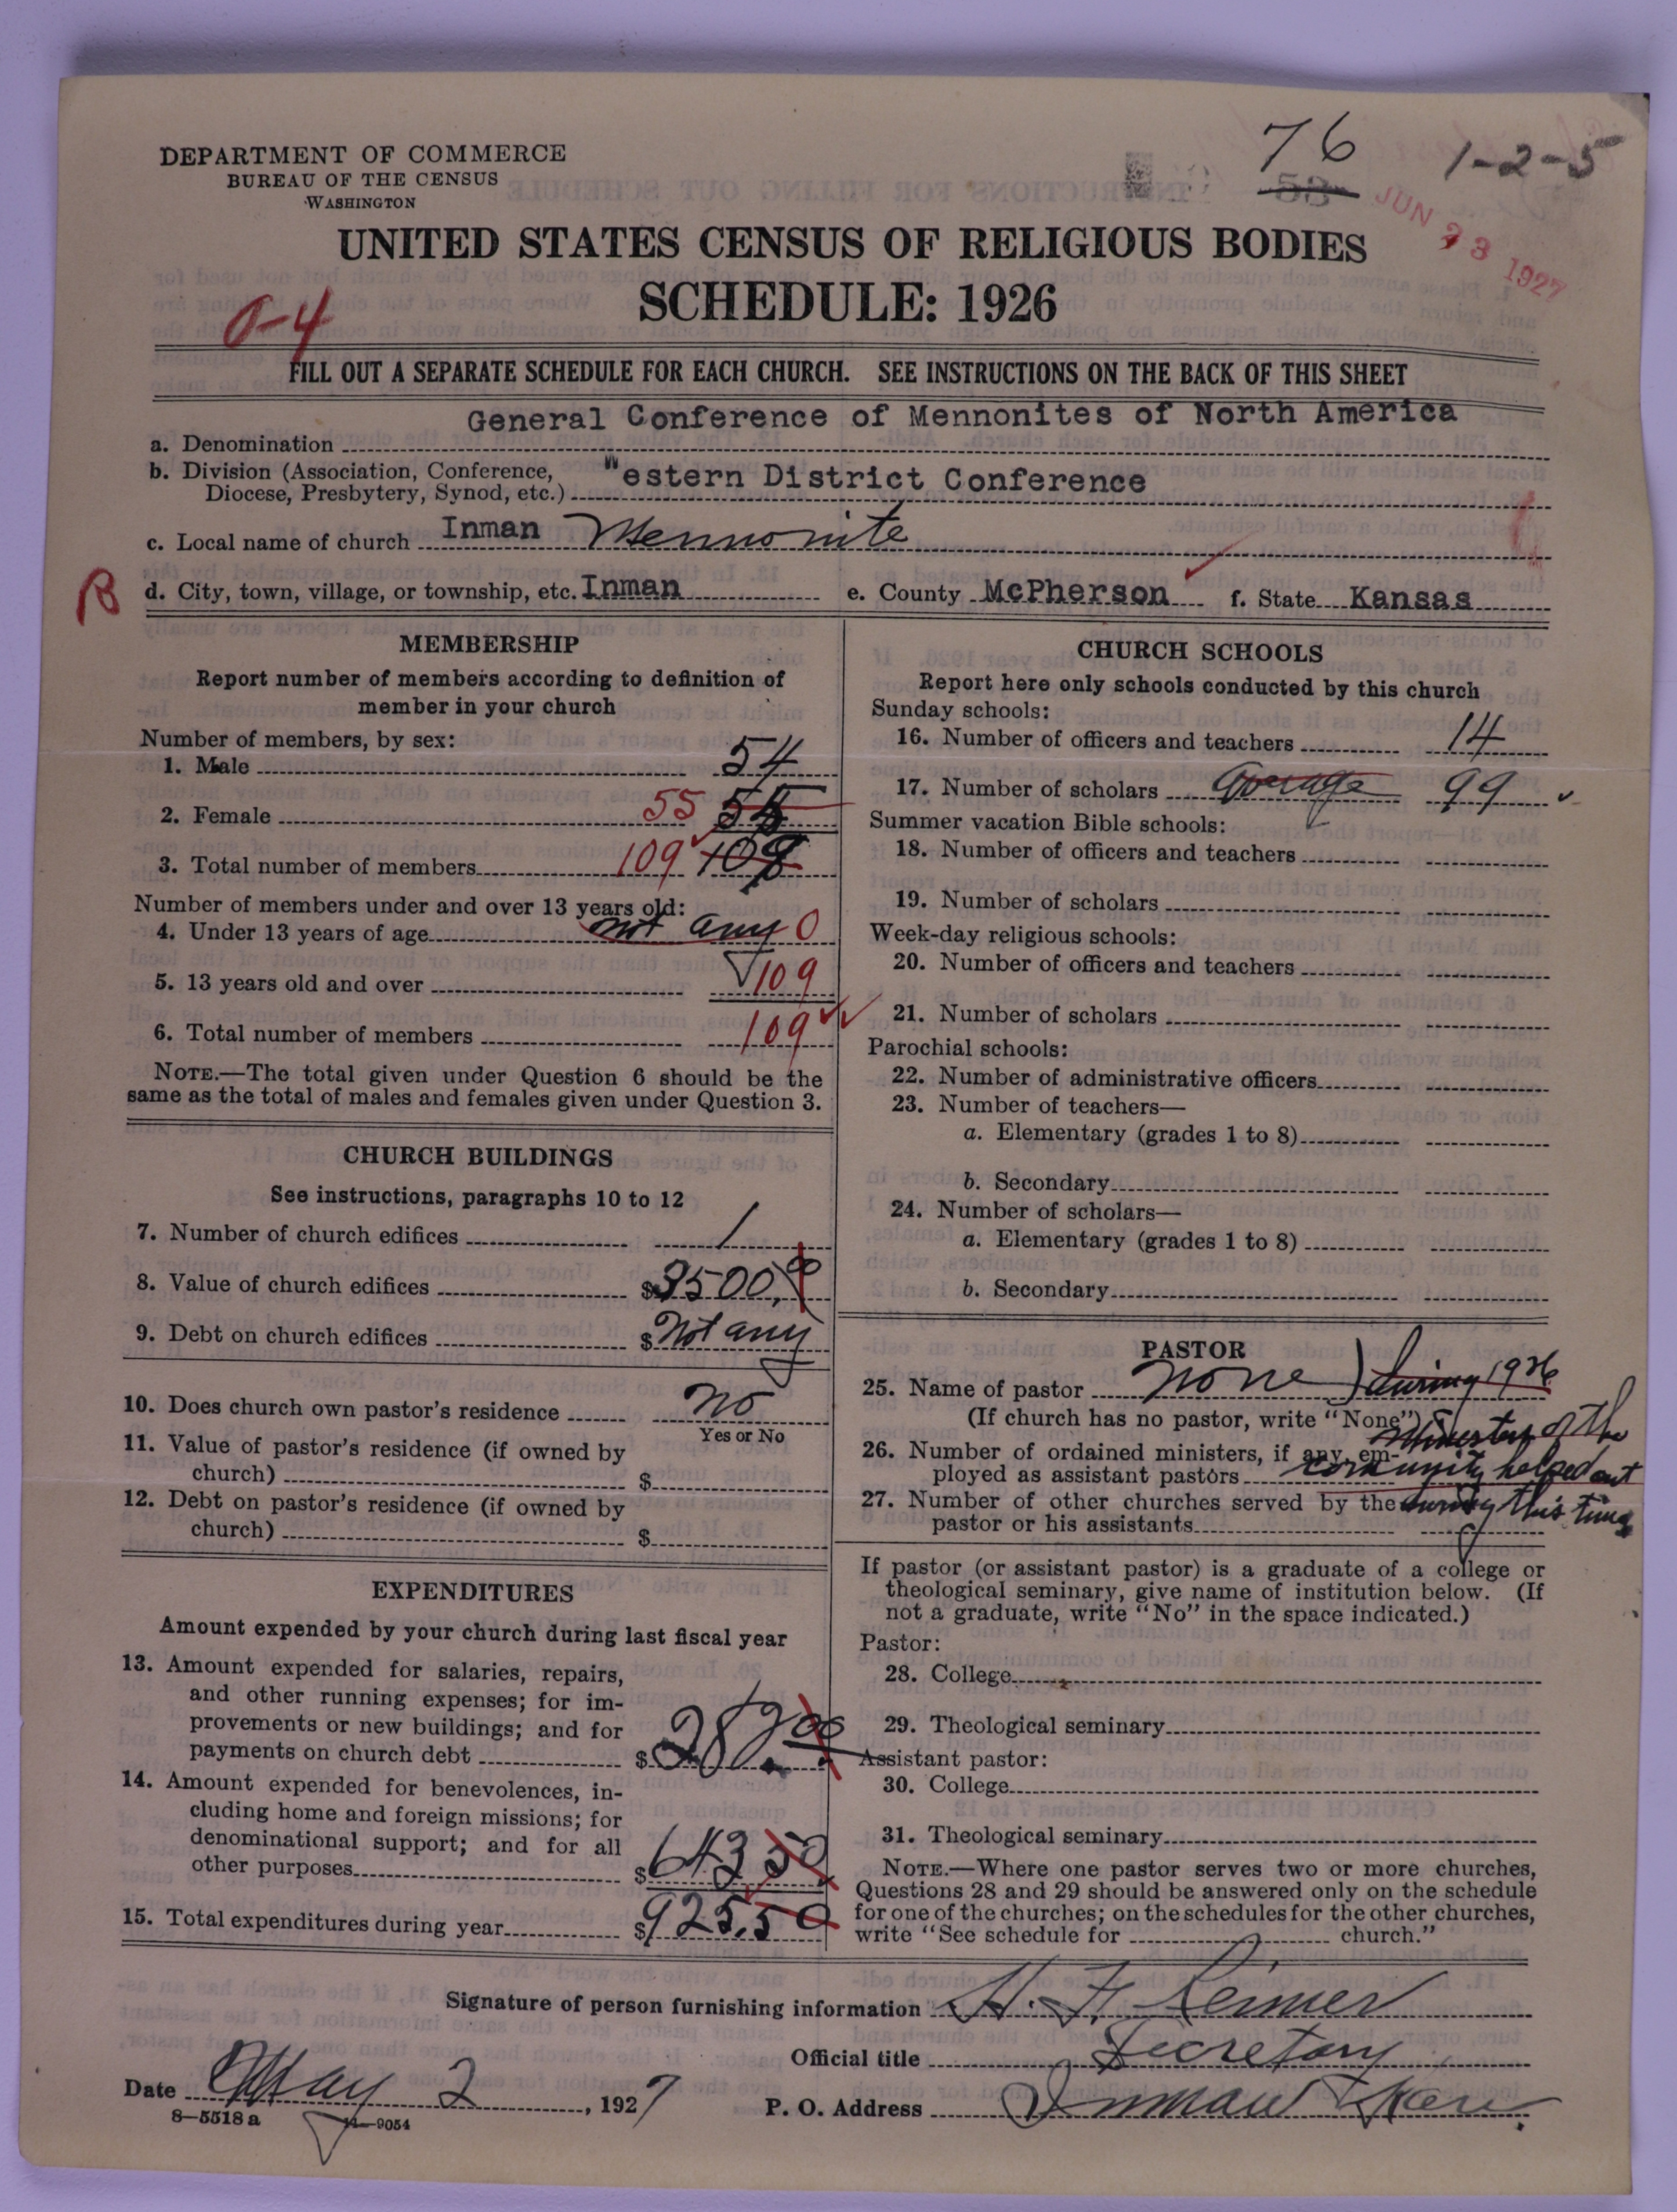 DEPARTMENT OF COMMERCE
BUREAU OF THE CENSUS
WASHINGTON
76
53
1-2-5
JUN 23 1927
UNITED STATES CENSUS OF RELIGIOUS BODIES
SCHEDULE: 1926
0-4
FILL OUT A SEPARATE SCHEDULE FOR EACH CHURCH. SEE INSTRUCTIONS ON THE BACK OF THIS SHEET
a. Denomination General Conference of Mennonites of North America
b. Division (Association, Conference,
Diocese, Presbytery, Synod, etc.) Western District Conference
c. Local name of church Inman Mennonite
B d. City, town, village, or township, etc. Inman e. County McPherson f. State Kansas
MEMBERSHIP
Report number of members according to definition of
member in your church
Number of members, by sex:
1. Male 54
2. Female 55
3. Total number of members 109
Number of members under and over 13 years old:
4. Under 13 years of age not any 0
5. 13 years old and over 109
6. Total number of members 109
NOTE.—The total given under Question 6 should be the
same as the total of males and females given under Question 3.
CHURCH BUILDINGS
See instructions, paragraphs 10 to 12
7. Number of church edifices 1
8. Value of church edifices $3500.00
9. Debt on church edifices $ Not any
10. Does church own pastor's residence No
Yes or No
11. Value of pastor's residence (if owned by
church) $
12. Debt on pastor's residence (if owned by
church) $
EXPENDITURES
Amount expended by your church during last fiscal year
13. Amount expended for salaries, repairs,
and other running expenses; for im-
provements or new buildings; and for
payments on church debt $282.00
14. Amount expended for benevolences, in-
cluding home and foreign missions; for
denominational support; and for all
other purposes $643 50
15. Total expenditures during year $925.50
CHURCH SCHOOLS
Report here only schools conducted by this church
Sunday schools:
16. Number of officers and teachers 14
17. Number of scholars average 99
Summer vacation Bible schools:
18. Number of officers and teachers
19. Number of scholars
Week-day religious schools:
20. Number of officers and teachers
21. Number of scholars
Parochial schools:
22. Number of administrative officers
23. Number of teachers—
a. Elementary (grades 1 to 8)
b. Secondary
24. Number of scholars—
a. Elementary (grades 1 to 8)
b. Secondary
PASTOR
25. Name of pastor none) during 1926
(If church has no pastor, write "None") Ministers of the
26. Number of ordained ministers, if any, em-
ployed as assistant pastors community helped out
27. Number of other churches served by the during this time
pastor or his assistants
If pastor (or assistant pastor) is a graduate of a college or
theological seminary, give name of institution below. (If
not a graduate, write "No" in the space indicated.)
Pastor:
28. College
29. Theological seminary
Assistant pastor:
30. College
31. Theological seminary
NOTE.—Where one pastor serves two or more churches,
Questions 28 and 29 should be answered only on the schedule
for one of the churches; on the schedules for the other churches,
write "See schedule for church."
Signature of person furnishing information H. F. Reimer
Official title Secretary
Date May 2, 1927 P. O. Address Inman Kans.
8—5518 a 11—9054